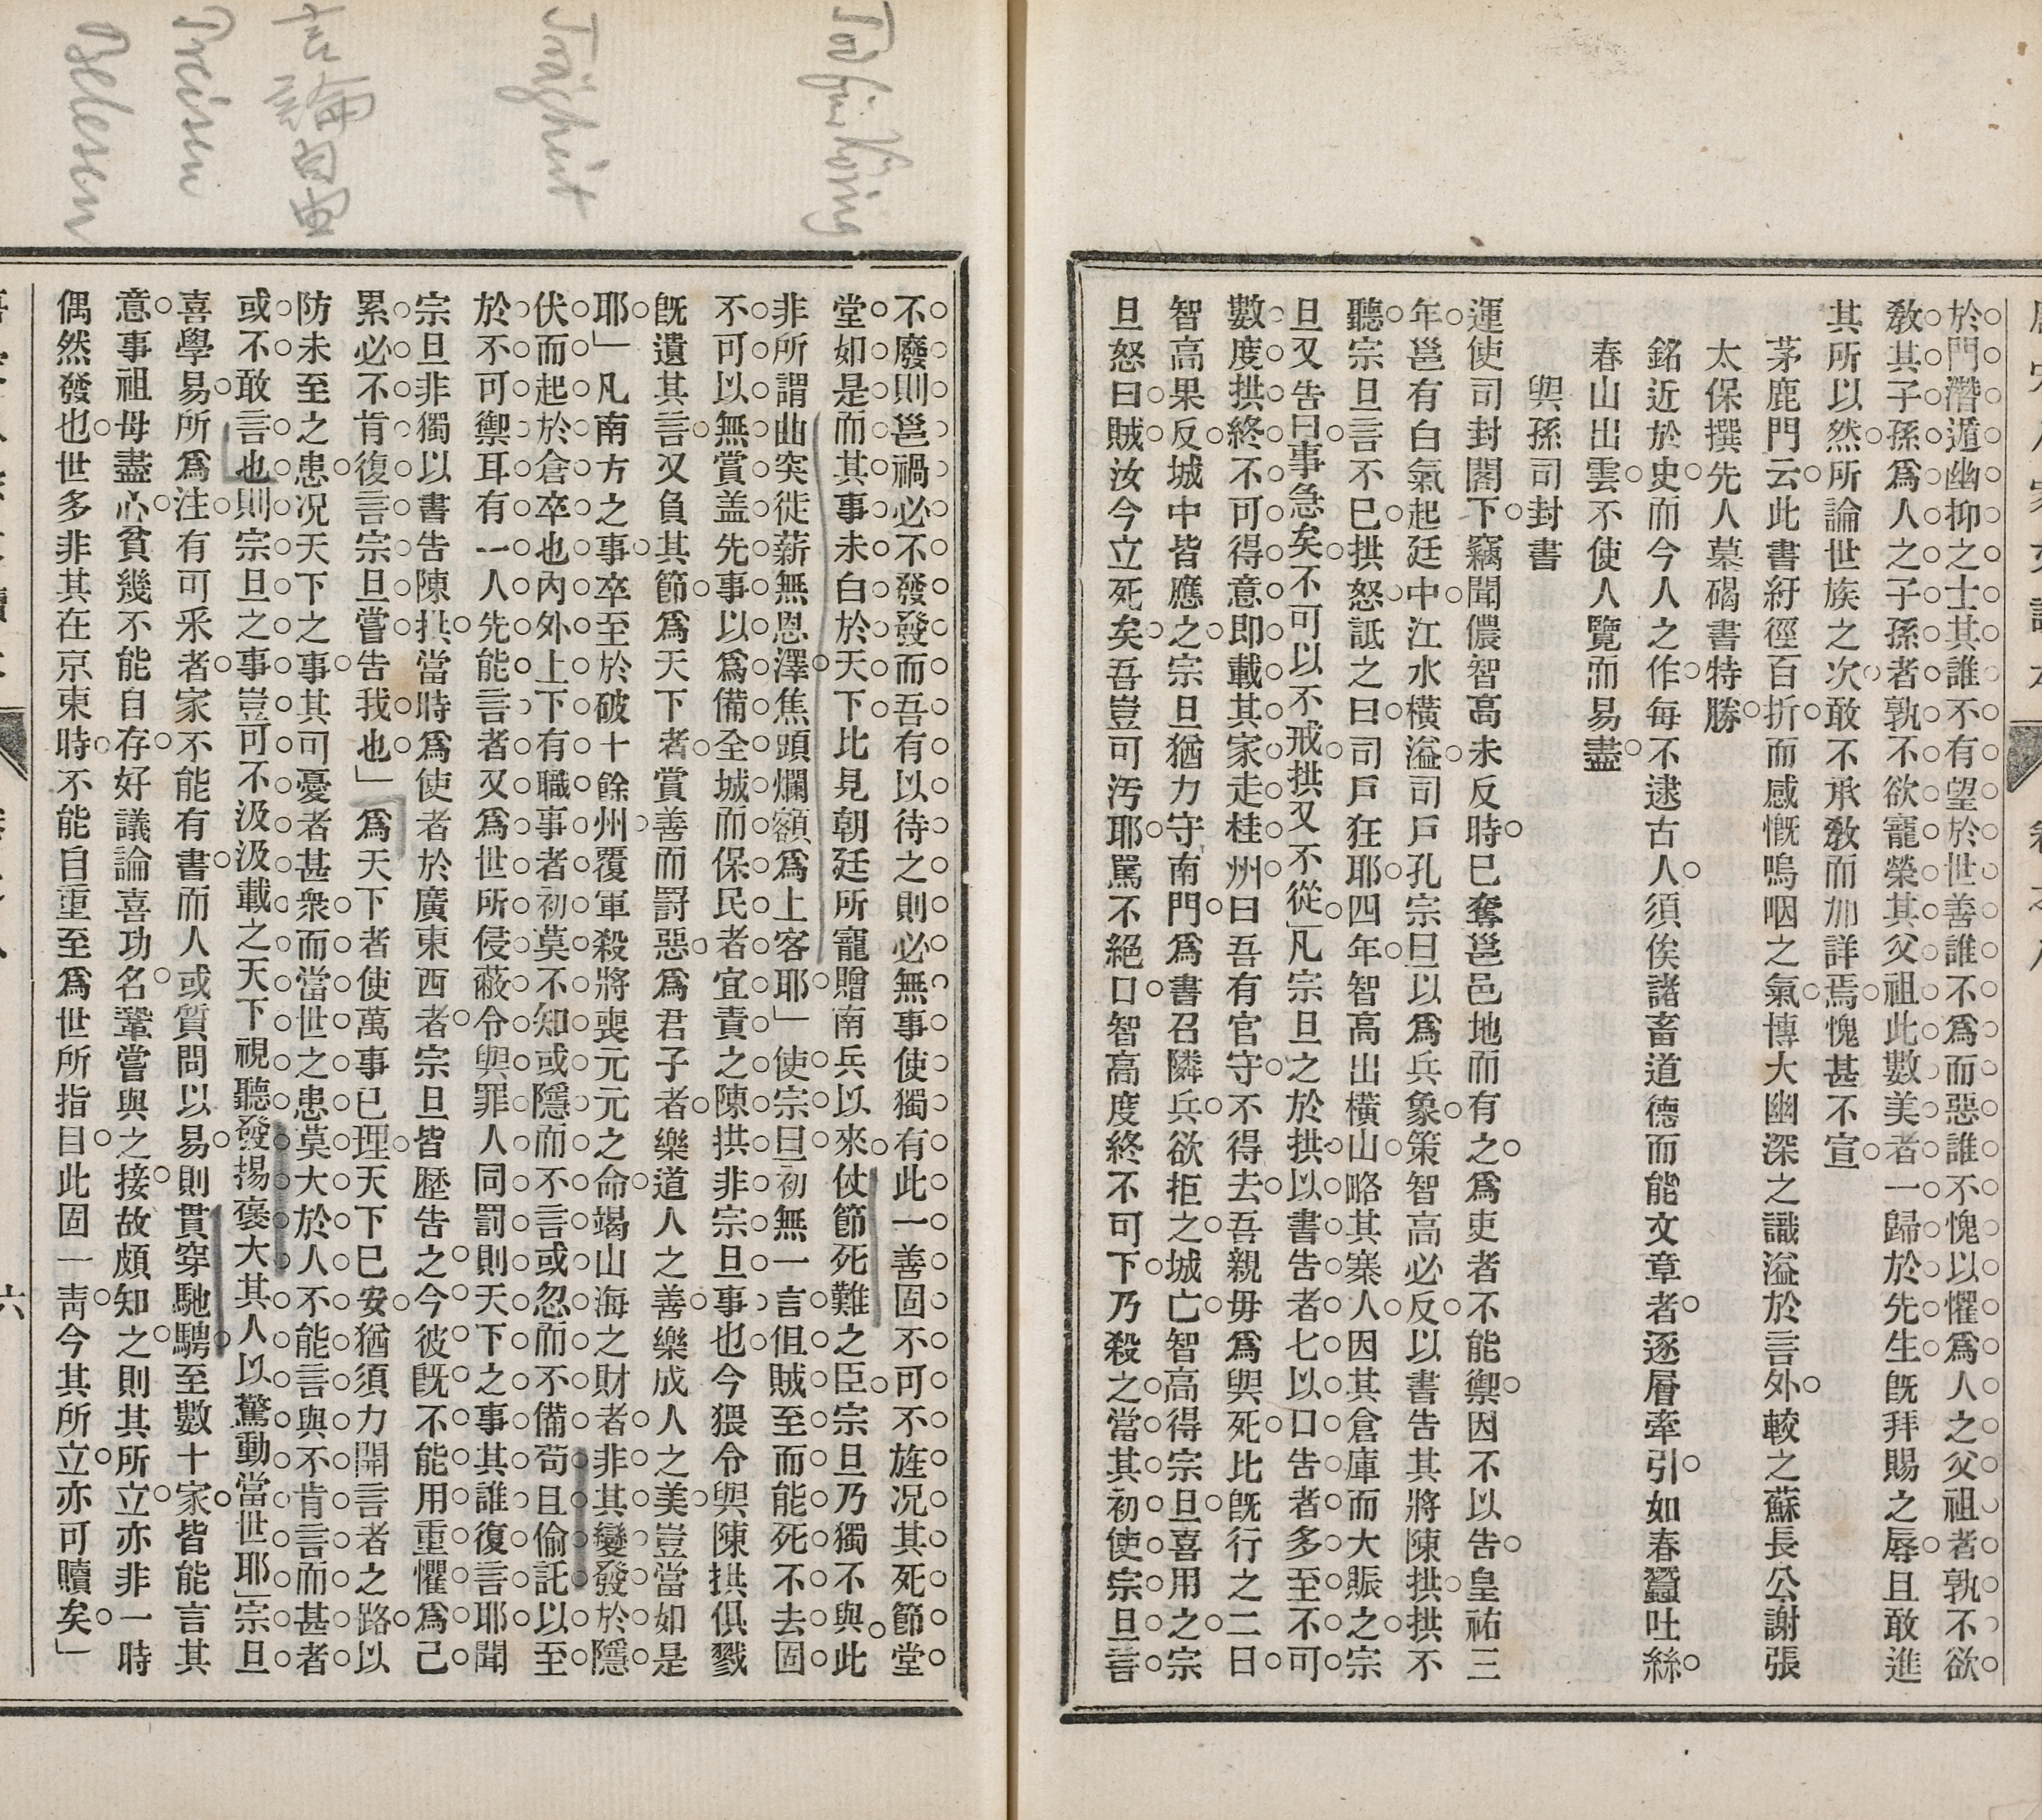 於門潛遁幽抑之士其誰不有望於世善誰不爲而惡誰不愧以懼爲人之父祖者孰不欲
敎其子孫爲人之子孫者孰不欲寵榮其父祖此數美者一歸於先生旣拜賜之辱且敢進
其所以然所論世族之次敢不承敎而加詳焉愧甚不宣
茅鹿門云此書紆徑百折而感慨嗚咽之氣博大幽深之識溢於言外較之蘇長公謝張
太保撰先人墓碣書特勝
銘近於史而今人之作每不逮古人須俟諸畜道德而能文章者逐層牽引如春蠶吐絲
春山出雲不使人覽而易盡
與孫司封書
運使司封閣下竊聞儂智高未反時已奪邕邑地而有之爲吏者不能禦因不以告皇祐三
年邕有白氣起廷中江水橫溢司戶孔宗旦以爲兵象策智高必反以書告其將陳拱拱不
聽宗旦言不已拱怒詆之曰司戶狂耶四年智高出橫山略其寨人因其倉庫而大賑之宗
旦又告曰事急矣不可以不戒拱又不從」凡宗旦之於拱以書告者七以口告者多至不可
數度拱終不可得意卽載其家走桂州曰吾有官守不得去吾親毋爲與死比旣行之二日
智高果反城中皆應之宗旦猶力守南門爲書召隣兵欲拒之城亡智高得宗旦喜用之宗
旦怒曰賊汝今立死矣吾豈可汚耶罵不絕口智高度終不可下乃殺之當其初使宗旦言
不廢則邕禍必不發發而吾有以待之則必無事使獨有此一善固不可不旌況其死節堂
堂如是而其事未白於天下比見朝廷所寵贈南兵以來仗節死難之臣宗旦乃獨不與此
非所謂曲突徙薪無恩澤焦頭爛額爲上客耶」使宗旦初無一言但賊至而能死不去固
不可以無賞盖先事以爲備全城而保民者宜責之陳拱非宗旦事也今猥令與陳拱俱戮
旣遺其言又負其節爲天下者賞善而罰惡爲君子者樂道人之善樂成人之美豈當如是
耶」凡南方之事卒至於破十餘州覆軍殺將喪元元之命竭山海之財者非其變發於隱
伏而起於倉卒也內外上下有職事者初莫不知或隱而不言或忽而不備苟且偷託以至
於不可禦耳有一人先能言者又爲世所侵蔽令與罪人同罰則天下之事其誰復言耶聞
宗旦非獨以書告陳拱當時爲使者於廣東西者宗旦皆歷告之今彼旣不能用重懼爲己
累必不肯復言宗旦嘗告我也」爲天下者使萬事已理天下已安猶須力開言者之路以
防未至之患況天下之事其可憂者甚衆而當世之患莫大於人不能言與不肯言而甚者
或不敢言也則宗旦之事豈可不汲汲載之天下視聽發揚褒大其人以驚動當世耶」宗旦
喜學易所爲注有可采者家不能有書而人或質問以易則貫穿馳騁至數十家皆能言其
意事祖母盡心貧幾不能自存好議論喜功名鞏嘗與之接故頗知之則其所立亦非一時
偶然發也世多非其在京東時不能自重至爲世所指目此固一眚今其所立亦可贖矣」
六
Tod für König
Trägheit
言論自由
Preisen
Belesen